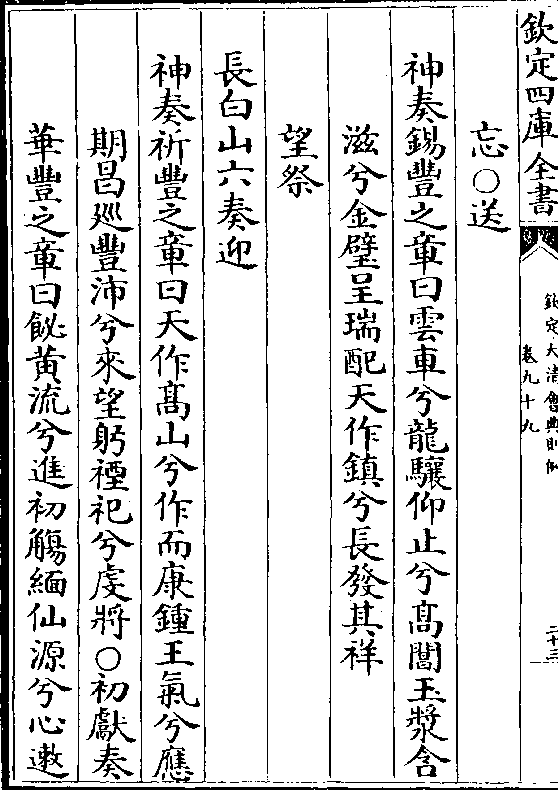 欽定四庫全書
欽定大清會典則例
卷九十九
二十三
忘○送
神奏錫豐之章曰雲車兮龍驤仰止兮髙閶玉漿含
滋兮金璧呈瑞配天作鎮兮長發其祥
望祭
長白山六奏迎
神奏祈豐之章曰天作髙山兮作而康鍾王氣兮應
期昌廵豐沛兮來望躬禋祀兮虔將○初獻奏
華豐之章曰飶黄流兮進初觴緬仙源兮心遫